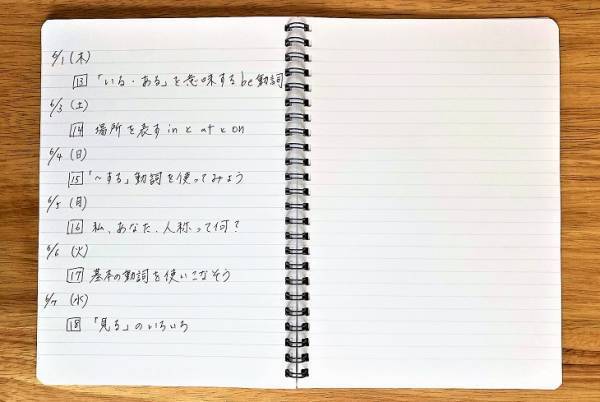 6/1 (木)
13 「いる・ある」を意味するbe動詞
6/3 (土)
14 場所を表す in と at と on
6/4 (日)
15 「〜する」動詞を使ってみよう
6/5 (月)
16 私、あなた、人称って何?
6/6 (火)
17 基本の動詞を使いこなそう
6/7 (水)
18 「見る」のいろいろ